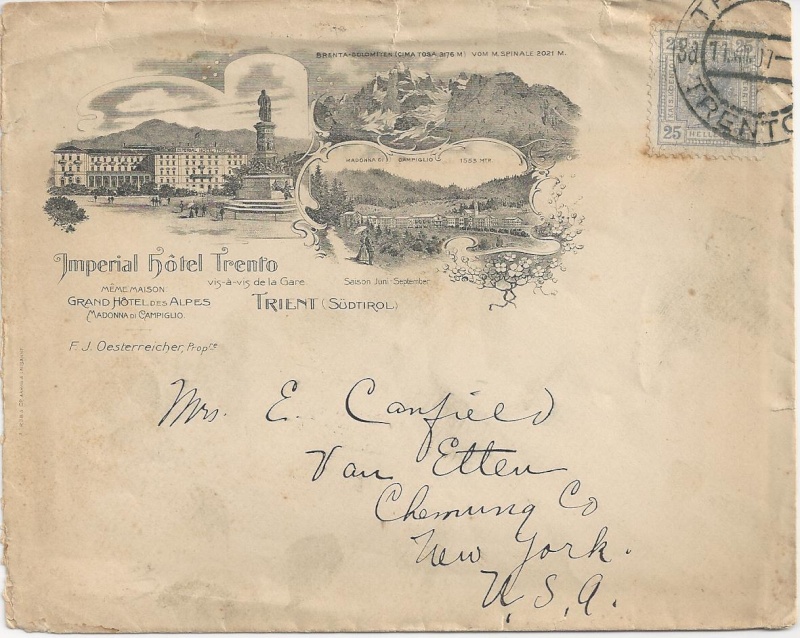 BRENTA-DOLOMITEN (CIMA TOSA 3176 M) VOM M. SPINALE 2021 M.
MADONNA DI CAMPIGLIO 1553 MTR.
Imperial Hôtel Trento
vis-à-vis de la Gare
Saison Juni-September
MÊME MAISON
GRAND HÔTEL DES ALPES
MADONNA DI CAMPIGLIO.
TRIENT (SÜDTIROL)
F. J. Oesterreicher, Propre
25 25
25 HELLER
TRENTO
Mrs. E. Canfield
Van Etten
Chemung Co
New York.
U.S.A.